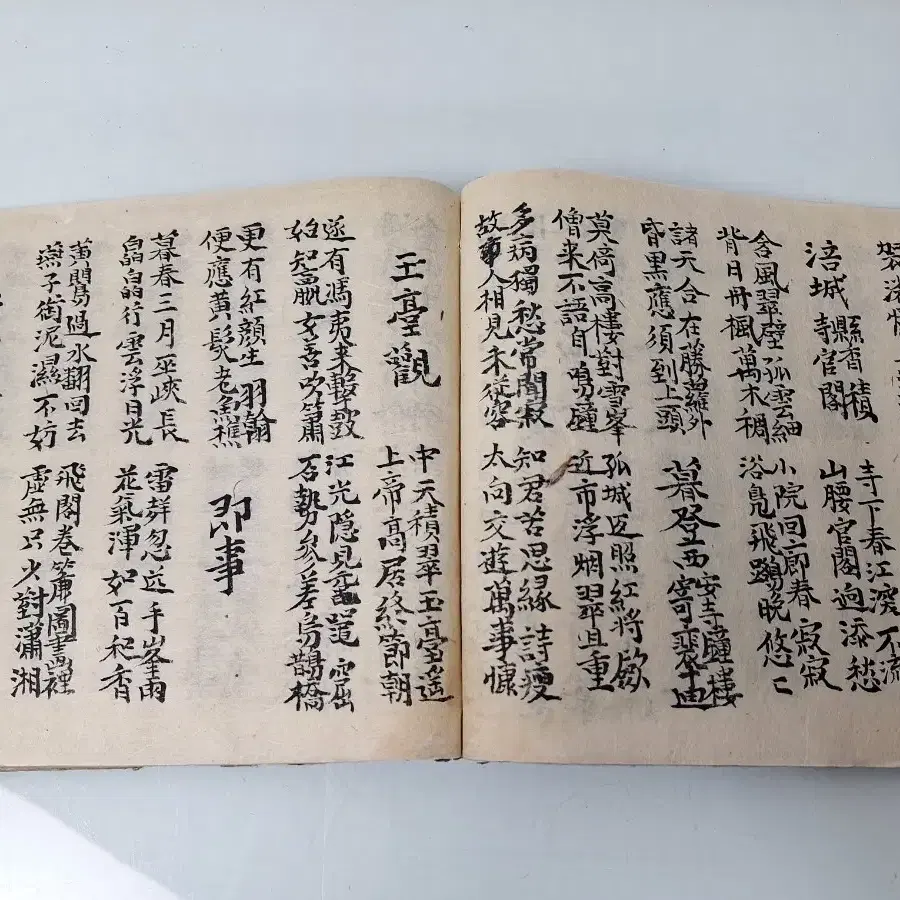 涪城縣香積
寺官閣
寺下春江深不流
山腰官閣逈添愁
含風翠壁孤雲細
背日丹楓萬木稠
小院回廊春寂寂
浴鳧飛鷺晚悠〻
諸天合在藤蘿外
昏黑應須到上頭
暮登西安寺鐘樓
寄裴十迪
莫倚高樓對雪峯
僧來不語自鳴鐘
孤城返照紅將歛
近市浮烟翠且重
多病獨愁常闃寂
故人相見未從容
知君苦思緣詩瘦
太向交遊萬事慵
玉臺觀
中天積翠玉臺遙
上帝高居絳節朝
遂有馮夷來擊鼓
始知嬴女善吹簫
江光隱見黿鼉窟
石勢參差烏鵲橋
更有紅顔生羽翰
便應黃髮老漁樵
即事
暮春三月巫峽長
皛皛行雲浮日光
雷聲忽送千峯雨
花氣渾如百和香
黃鶯過水翻回去
燕子銜泥濕不妨
飛閣卷簾圖畫裡
虛無只少對瀟湘